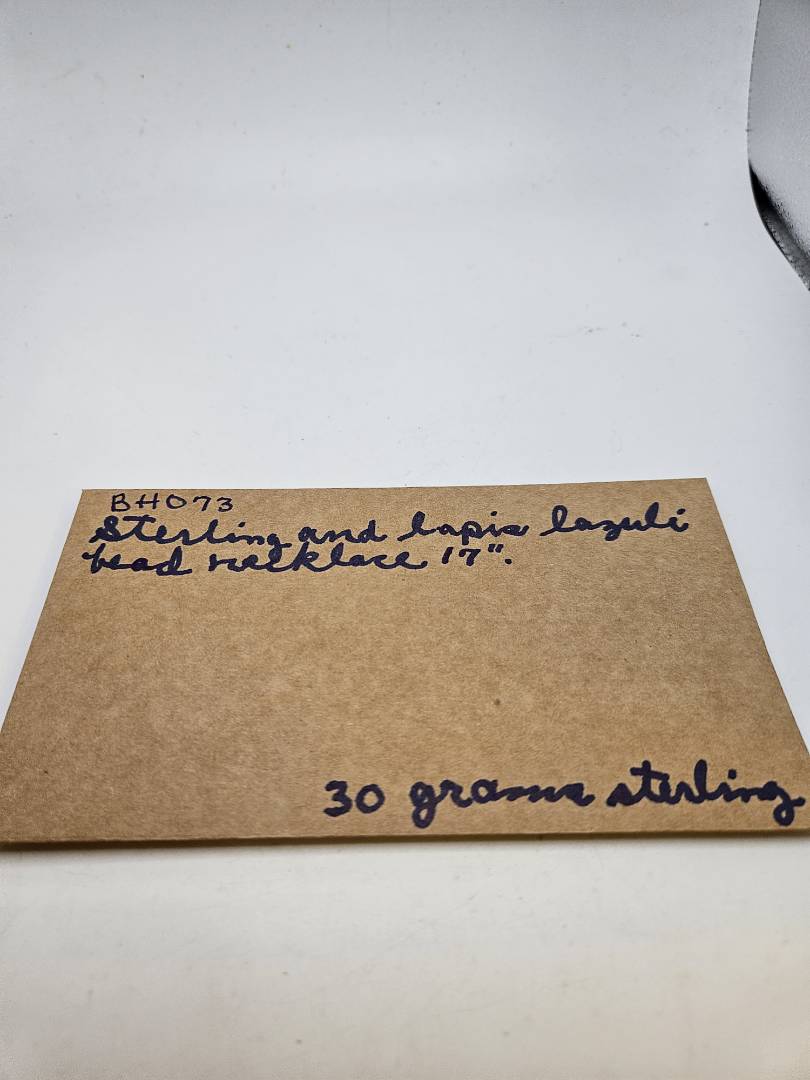 BH073
Sterling and lapis lazuli
bead necklace 17".
30 grams sterling